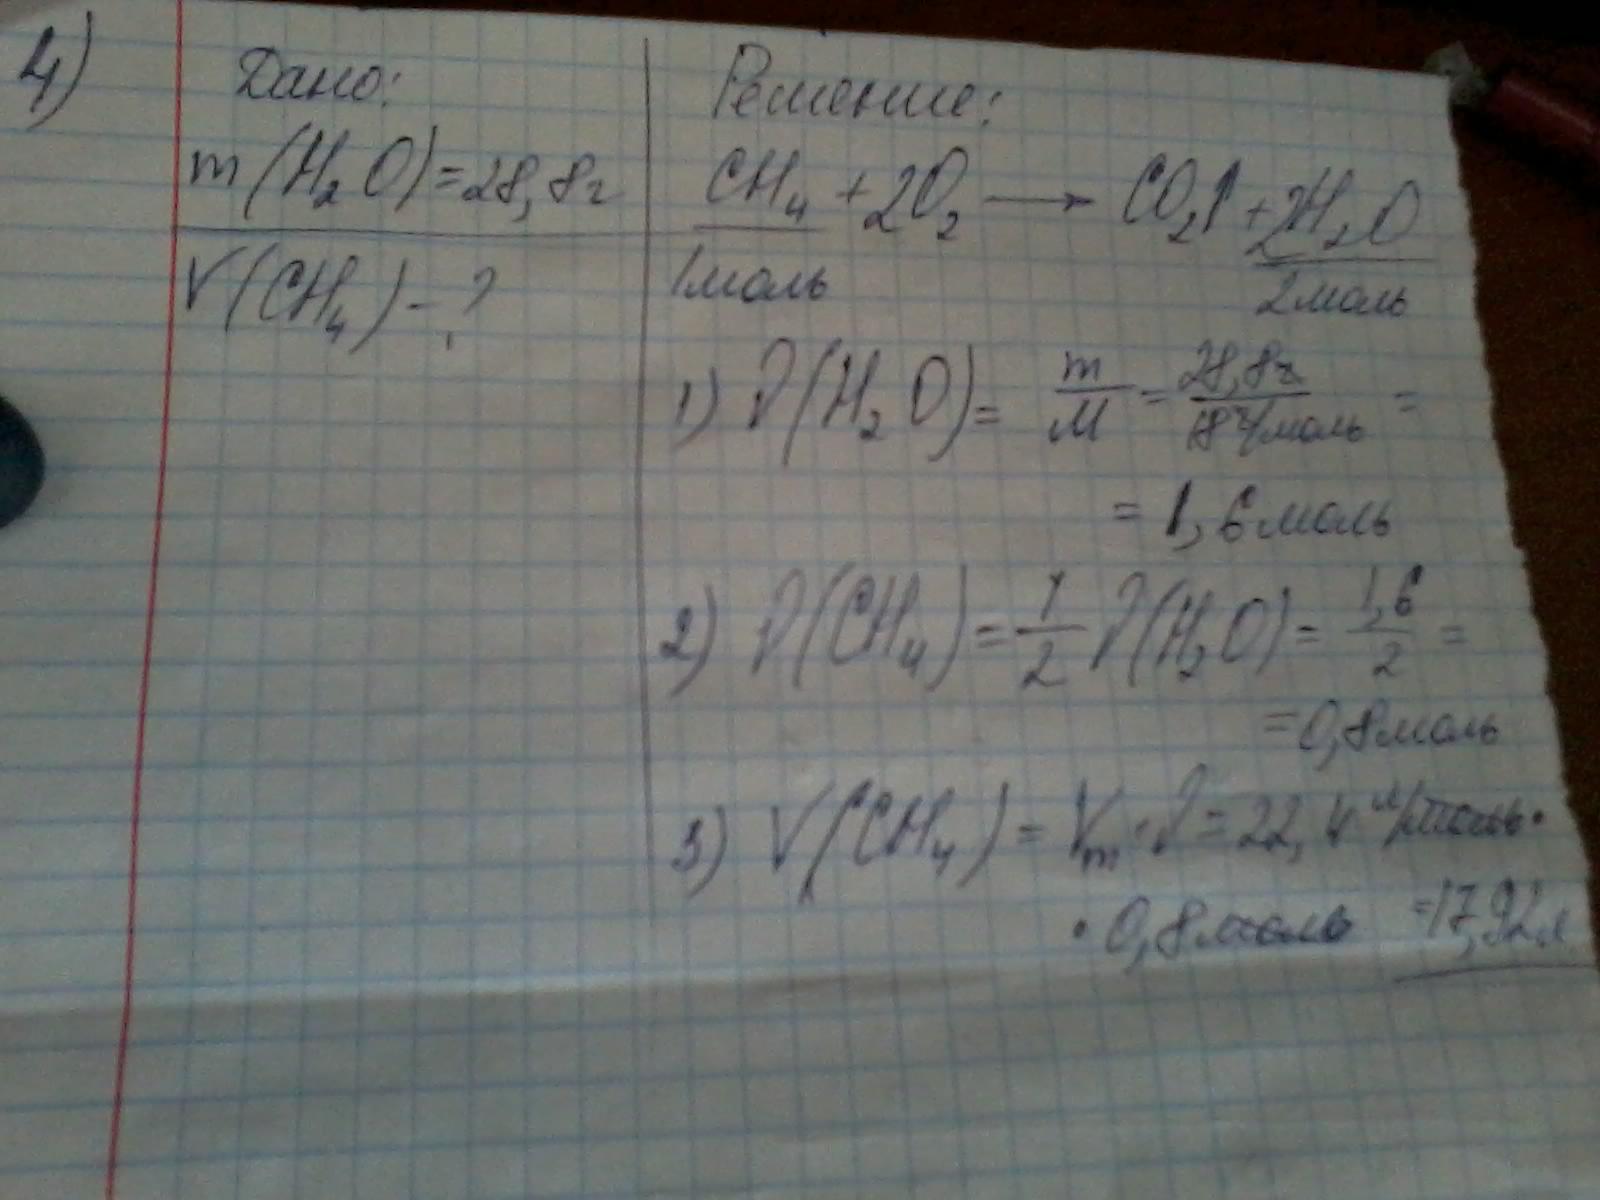 4)
Дано:
m(H₂O)=28,8г
V(CH₄)-?
Решение:
CH₄+2O₂→CO₂↑+2H₂O
1моль 2моль
1) ν(H₂O)= m/M = 28,8г/18г/моль =
= 1,6моль
2) ν(CH₄)= 1/2 ν(H₂O)= 1,6/2 =
=0,8моль
3) V(CH₄)= Vm·ν=22,4л/моль·
·0,8моль =17,92л